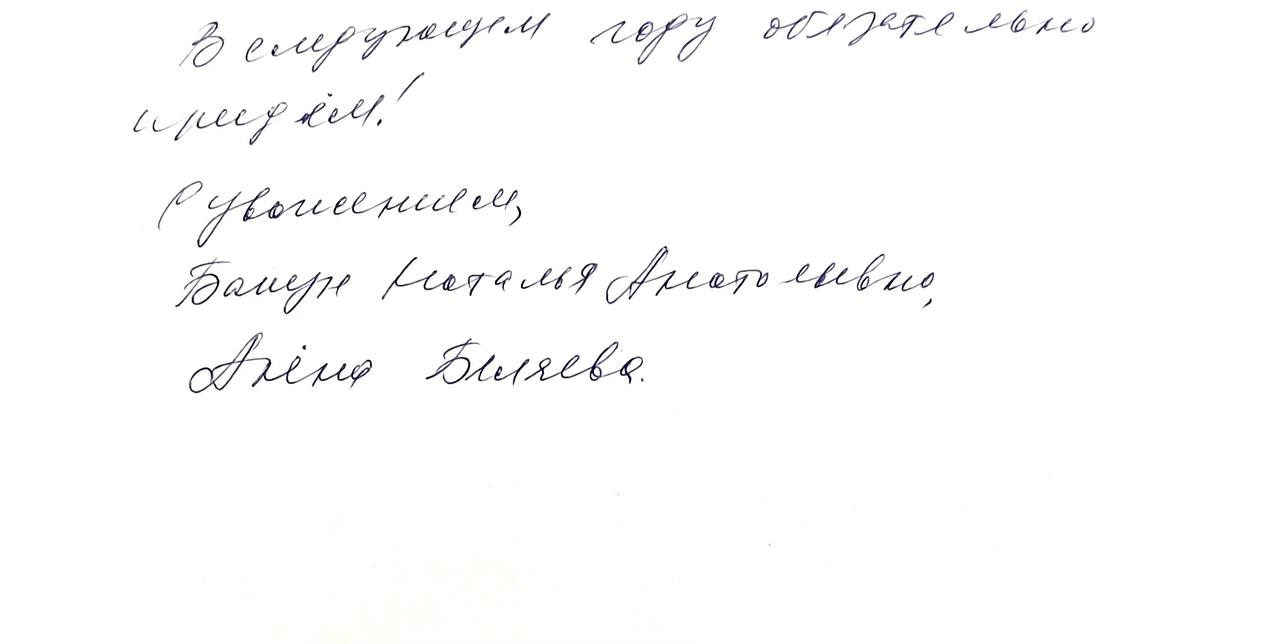 В следующем году обязательно
придём!
С уважением,
Наталья Анатольевна,
Алёна Беляева.